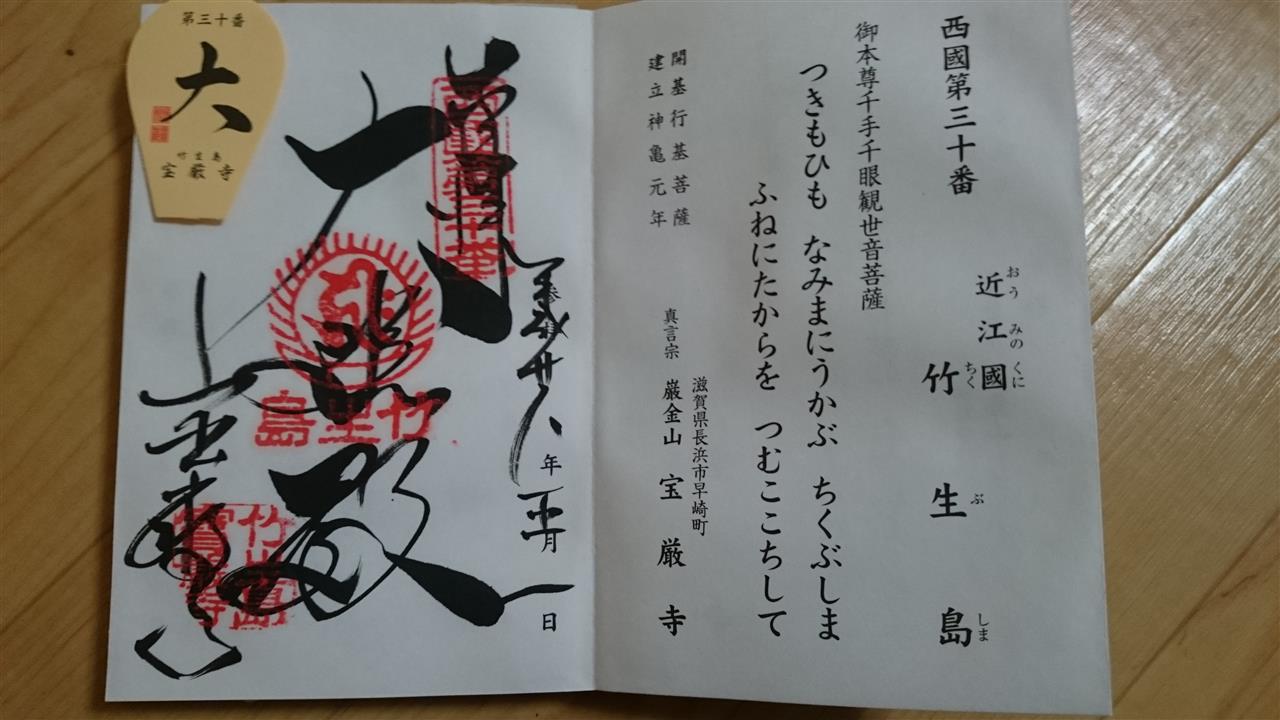 西國第三十番
おうみのくに
近江國
ちくぶしま
竹生島
御本尊千手千眼観世音菩薩
つきもひも なみまにうかぶ ちくぶしま
ふねにたからを つむここちして
開基行基菩薩
建立神亀元年
滋賀県長浜市早崎町
真言宗 巌金山 宝厳寺
年 月 日
西國第三十番
大悲殿
竹生島
第三十番
大
竹生島
宝厳寺